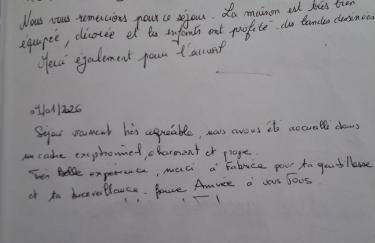 Nous vous remercions pour ce séjour. La maison est très bien
équipée, décorée et les enfants ont profité des bandes dessinées
Merci également pour l'accueil
01/2026
Séjour vraiment très agréable, nous avons été accueilli dans
un cadre exceptionnel, charmant et propre.
Très Belle expérience, merci à Fabrice pour ta gentillesse
et ta bienveillance. Bonne Année à vous Tous.